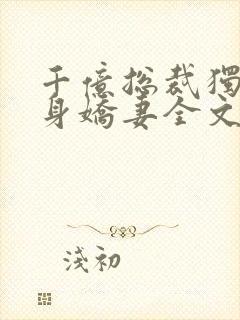 千億總裁獨
身嬌妻全文
淺初